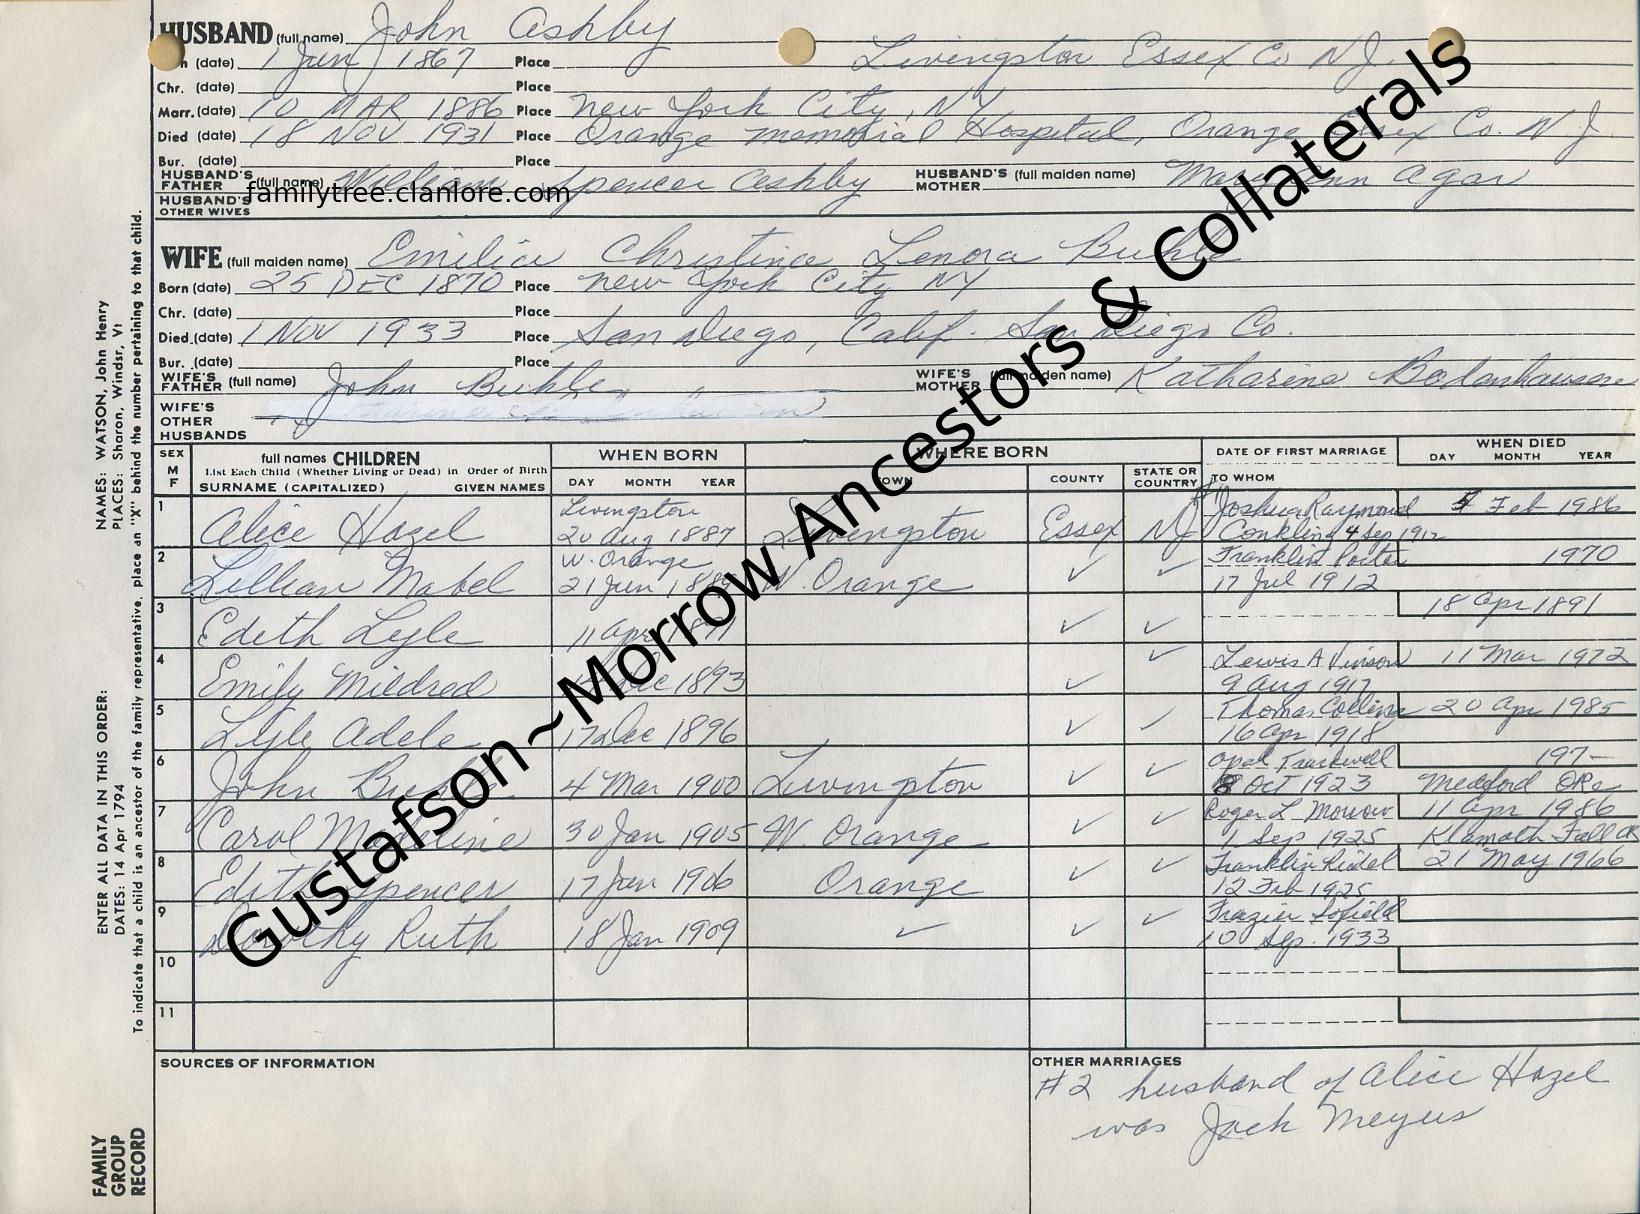 HUSBAND (full name) John Ashby
(date) 1 Jun 1867 Place Livingston Essex Co N.J.
Chr. (date) Place
Marr. (date) 10 MAR 1886 Place New York City, NY
Died (date) 18 NOV 1931 Place Orange Memorial Hospital, Orange, Essex Co. N J.
Bur. (date) Place
HUSBAND'S FATHER (full name) William Spencer Ashby HUSBAND'S MOTHER (full maiden name) Mary Ann Agar
familytree.clanlore.com
HUSBAND'S OTHER WIVES
WIFE (full maiden name) Emilie Christine Lenora Buhle
Born (date) 25 DEC 1870 Place New York City NY
Chr. (date) Place
Died (date) 1 NOV 1933 Place San Diego, Calif. San Diego Co.
Bur. (date) Place
WIFE'S FATHER (full name) John Buhle WIFE'S MOTHER (full maiden name) Katharine Bodenhausen
WIFE'S OTHER HUSBANDS
SEX M F full names CHILDREN WHEN BORN WHERE BORN DATE OF FIRST MARRIAGE WHEN DIED
List Each Child (Whether Living or Dead) in Order of Birth
SURNAME (CAPITALIZED) GIVEN NAMES DAY MONTH YEAR TOWN COUNTY STATE OR COUNTRY TO WHOM DAY MONTH YEAR
1 Livingston Joshua Raymond Feb 1986
Alice Hazel 20 Aug 1887 Livingston Essex NJ Conkling 4 Sep 1912
2 W. Orange Franklin Porter 1970
Lillian Mabel 21 Jun W. Orange ✓ ✓ 17 Jul 1912
3 18 Apr 1891
Edith Lyle 11 Apr ✓ ✓
4 Lewis A Vinson 11 Mar 1972
Emily Mildred Dec 1893 ✓ ✓ 9 Aug 1917
5 Thomas Collins 20 Apr 1985
Lyle Adele 17 Dec 1896 ✓ ✓ 16 Apr 1918
6 Opal 197-
John Buhle 4 Mar 1900 Livingston ✓ ✓ 8 OCT 1923 Medford ORe
7 Roger L Morrow 11 Apr 1986
Carol Madeline 30 Jan 1905 W. Orange ✓ ✓ 1 Sep 1925 Klamath Falls OR
8 Franklin Riedel 21 May 1966
Edith Spencer 17 Jun 1906 Orange ✓ ✓ 12 Feb 1925
9 Frazier Sofield
Dorothy Ruth 18 Jan 1909 ✓ ✓ ✓ 10 Sep. 1933
10
11
SOURCES OF INFORMATION OTHER MARRIAGES
#2 husband of Alice Hazel
was Jack Meyers
Gustafson~Morrow Ancestors & Collaterals
ENTER ALL DATA IN THIS ORDER: NAMES: WATSON, John Henry
DATES: 14 Apr 1794 PLACES: Sharon, Windsr, Vt
To indicate that a child is an ancestor of the family representative, place an "X" behind the number pertaining to that child.
FAMILY
GROUP
RECORD